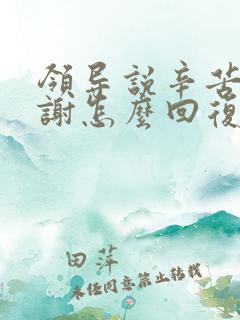 領导説辛苦
謝怎麽回復
田萍
未经同意禁止转载